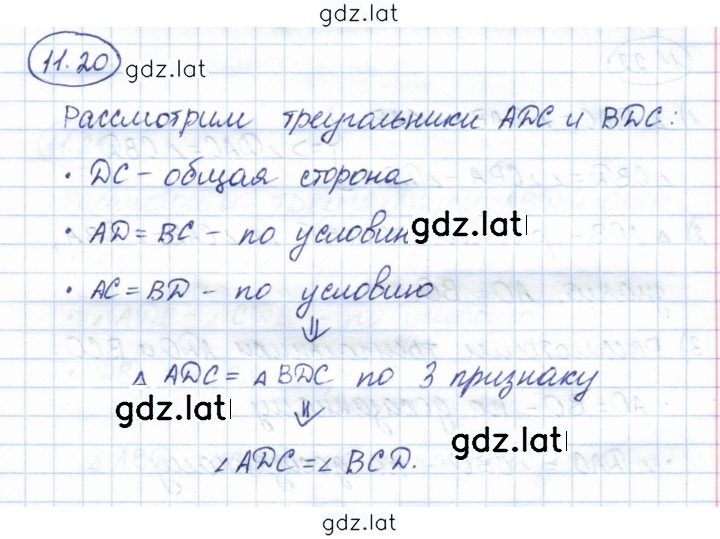 gdz.lat
11.20
gdz.lat
Рассмотрим треугольники ADC и BDC:
• DC - общая сторона
• AD = BC - по условию gdz.lat
• AC = BD - по условию
⇓
△ ADC = △ BDC по 3 признаку
gdz.lat ⇓
gdz.lat
∠ ADC = ∠ BCD.
gdz.lat